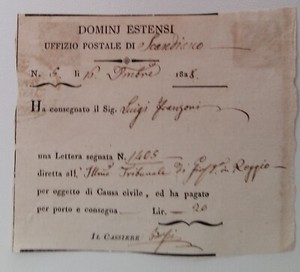 DOMINJ ESTENSI
UFFIZIO POSTALE DI Scandiano
N. 6. li 16 Ombre 184
Ha consegnato il Sig. Luigi Franzoni
una Lettera segnata N. 1405
diretta all' Illmo Tribunale di in Reggio
per oggetto di Causa civile, ed ha pagato
per porto e consegna Lir. — 20
IL CASSIERE